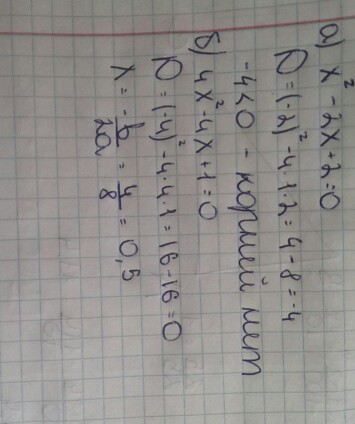 а) x² - 2x + 2 = 0
D = (-2)² - 4·1·2 = 4 - 8 = -4
-4 < 0 - корней нет
б) 4x² - 4x + 1 = 0
D = (-4)² - 4·4·1 = 16 - 16 = 0
x = -b/2a = 4/8 = 0,5